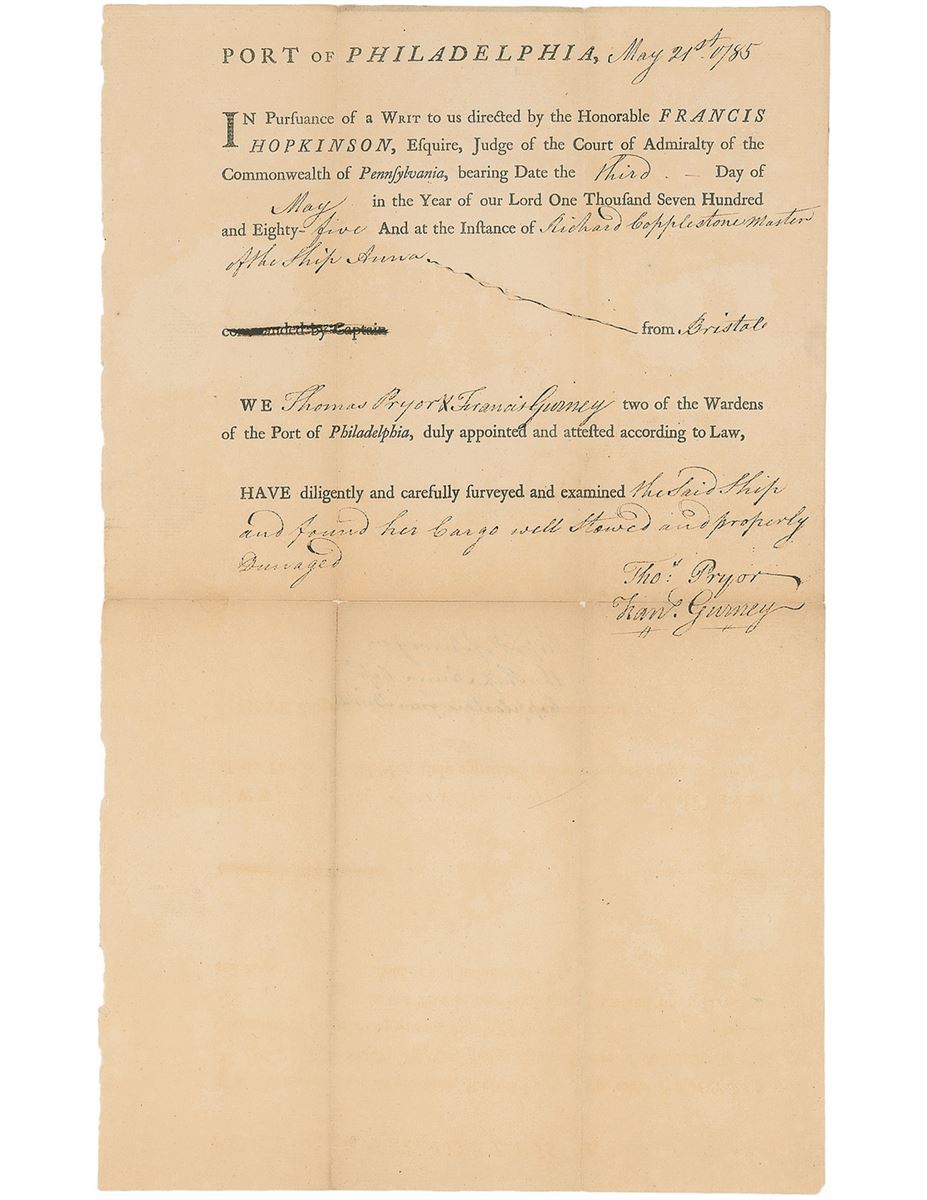 PORT OF PHILADELPHIA, May 21st. 1785
IN Purſuance of a WRIT to us directed by the Honorable FRANCIS
HOPKINSON, Eſquire, Judge of the Court of Admiralty of the
Commonwealth of Pennſylvania, bearing Date the third. — Day of
May in the Year of our Lord One Thouſand Seven Hundred
and Eighty-five And at the Inſtance of Richard Copplestone Master
of the Ship Anna
commanded by Captain from Bristol
WE Thomas Pryor & Francis Gurney two of the Wardens
of the Port of Philadelphia, duly appointed and atteſted according to Law,
HAVE diligently and carefully ſurveyed and examined the Said Ship
and found her Cargo well Stowed and properly
Dunaged
Thos. Pryor
Frans. Gurney